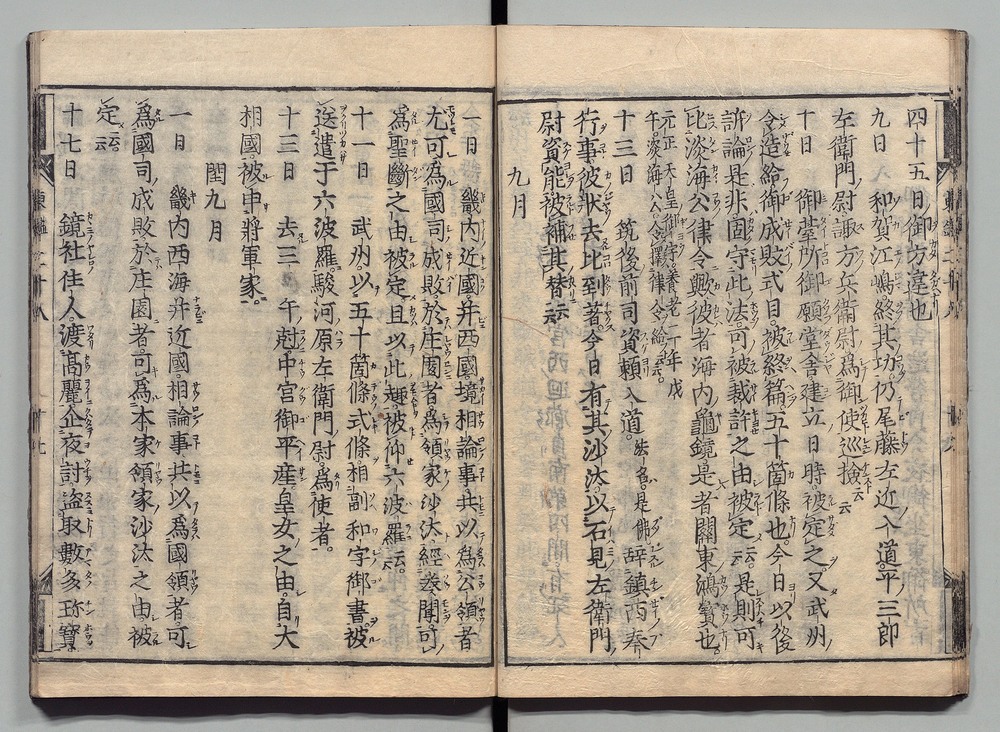 四十五日御方違也
九日　和賀江嶋終其功仍尾藤左近入道平三郎
左衛門尉諏方兵衛尉爲御使巡撿云云
十日　御堂所御願堂舎建立日時被定之又武州
令造給御成敗式目被終篇五十箇條也今日以後
訴論是非固守此法可被裁許之由被定云云是則可
比淡海公律令歟彼者海内龜鏡是者關東鴻寳也
元正天皇御宇養老二年戊
午淡海公令撰律令給云云
十三日　筑後前司資頼入道法名是佛辞鎮西奉
行事彼状去比到著今日有其沙汰以石見左衛門
尉資能被補其替云云
九月
一日　畿内近國并西國境相論事共以為公領者
尤可爲國司成敗於庄園者爲領家沙汰經奏聞可
爲聖斷之由被定且以此趣被仰六波羅云云
十一日　武州以五十箇條式條相副和字御書被
送遣于六波羅駿河原左衛門尉爲使者
十三日　去三　午尅中宮御平産皇女之由自大
相國被申將軍家
閏九月
一日　畿内西海并近國相論事共以爲國領者可
為國司成敗於庄園者可爲本家領家沙汰之由被
定云云
十七日　鏡社住人渡髙麗企夜討盗取數多珎寳